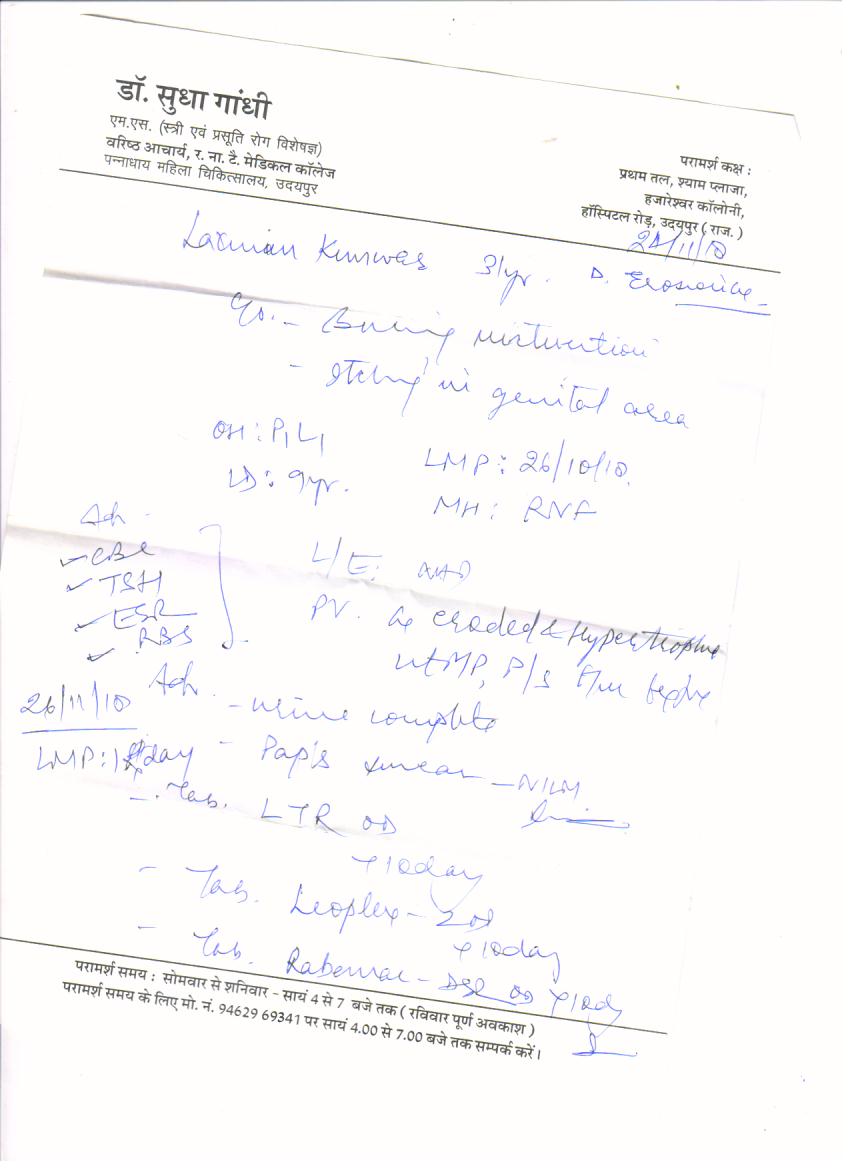 डॉ. सुधा गांधी
एम.एस. (स्त्री एवं प्रसूति रोग विशेषज्ञ)
वरिष्ठ आचार्य, र. ना. टै. मेडिकल कॉलेज
पन्नाधाय महिला चिकित्सालय, उदयपुर
परामर्श कक्ष :
प्रथम तल, श्याम प्लाजा,
हजारेश्वर कॉलोनी,
हॉस्पिटल रोड़, उदयपुर ( राज. )
24/11/10
31yr.
- Burning micturition
- Itching in genital area
OH: P1L1
LMP: 26/10/10.
LD: 9yr.
MH: RNF
Adv -
✓ CBC
✓ TSH
✓ ESR
✓ RBS
L/E: NAD
PV. Cx eroded & Hypertrophic
Ut MP, P/S
Adv.
26/11/10
- urine complete
LMP: 1st day
- Pap's smear - NILM
- Tab. LTR OD
x 10day
- Tab. - 2 OD
x 10day
- Tab. - DSR OD x 10day
परामर्श समय : सोमवार से शनिवार - सायं 4 से 7 बजे तक ( रविवार पूर्ण अवकाश )
परामर्श समय के लिए मो. नं. 94629 69341 पर सायं 4.00 से 7.00 बजे तक सम्पर्क करें।